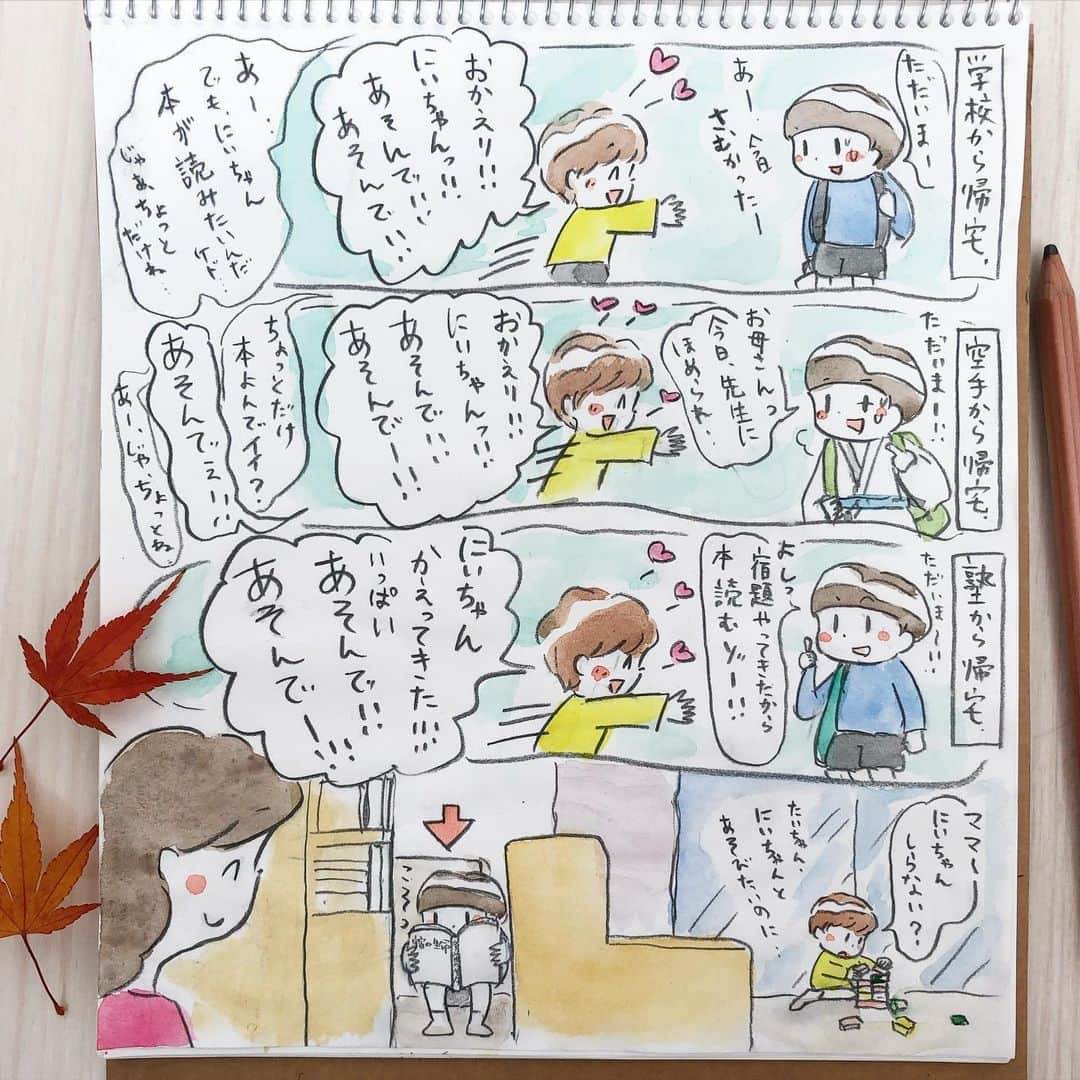 学校から帰宅。
ただいまー
あー、今日
さむかったー
おかえり!!
にいちゃんっ!!
あそんでい!!
あそんでい!!
あー、
でも、にいちゃん
本が読みたいんだ
ケド…
じゃあちょっと
だけね…
空手から帰宅。
ただいまー!!
お母さんっ
今日、先生に
ほめられ…
おかえり!!!
にいちゃんっ!!
あそんでい!!
あそんでー!!
ちょっとだけ
本よんでイイ?
あそんでぇ!!
あーじゃ、ちょっとね。
塾から帰宅。
ただいま〜!!
よしっ
宿題やってきたから
本読むゾー!!
にいちゃん
かえってきた!!!
いっぱい
あそんで!!!
あそんでー!!!
ママ〜
にいちゃん
しらない??
たいちゃん、
にいちゃんと
あそびたいのに